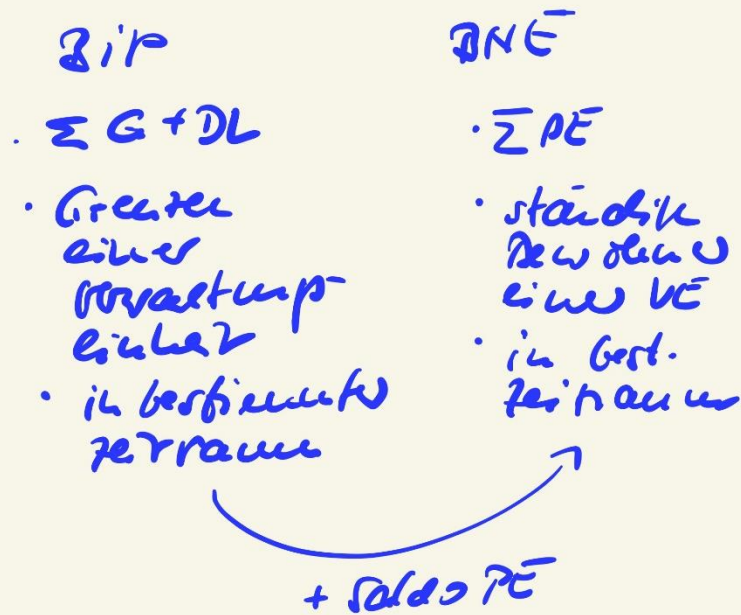 BIP
· Σ G + DL
· Grenzen
einer
Verwaltungs-
einheit
· in bestimmter
Zeitraum
BNE
· Σ PE
· ständig
Bewohner
einer VE
· in best.
Zeitraum
+ Saldo PE